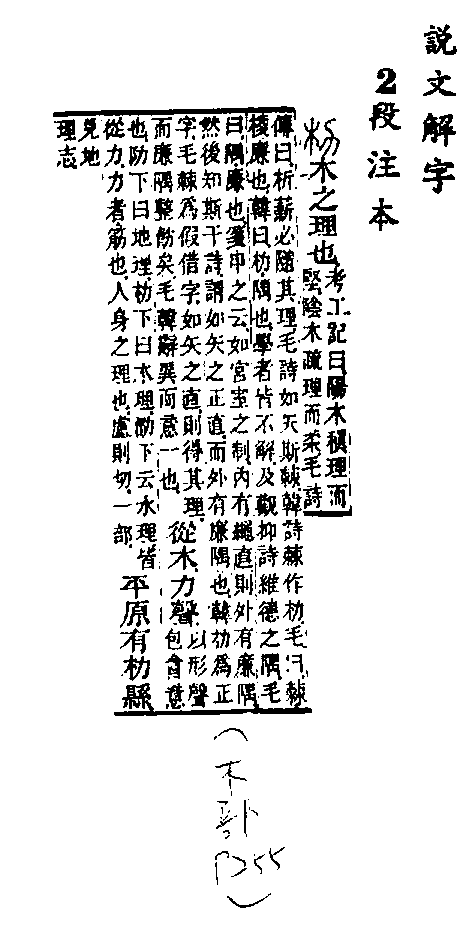 説文解字
2段注本
朸木之理也考工記曰陽木稹理而
堅陰木疏理而柔毛詩
傳曰析薪必隨其理毛詩如矢斯棘韓詩棘作朸毛曰棘
棱廉也韓曰朸隅也學者皆不解及觀抑詩維德之隅毛
曰隅廉也箋申之云如宮室之制內有繩直則外有廉隅
然後知斯干詩謂如矢之正直而外有廉隅也韓朸為正
字毛棘為假借字如矢之直則得其理從木力聲以形聲包會意
而廉隅整飭矣毛韓辭異而意一也
也阞下曰地理朸下曰木理泐下云水理皆
從力力者筋也人身之理也盧則切一部平原有朸縣
見地
理志
(木部
P255)